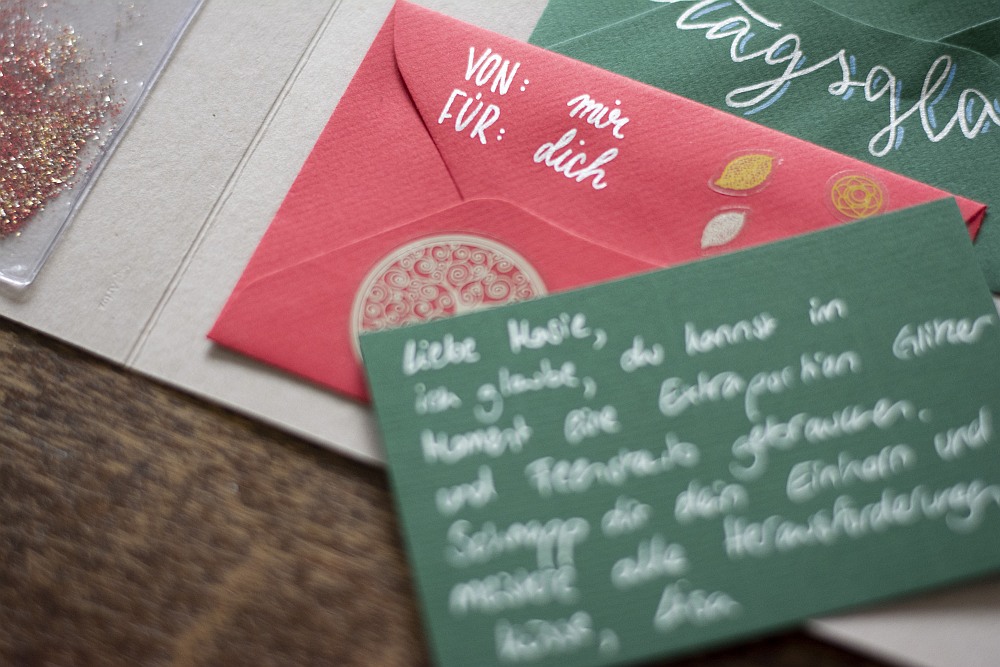 tagsgla
VON: mir
FÜR: dich
Liebe Marie,
ich glaube, du kannst im
Moment eine Extraportion Glitzer
und Feenstaub gebrauchen.
Schnapp dir dein Einhorn und
meistere alle Herausforderungen